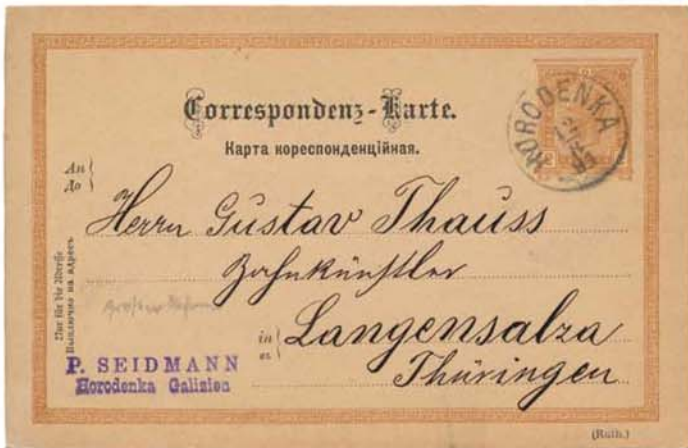 Correspondenz-Karte.
Карта кореспонденційная.
HORODENKA
An
До
Herrn Gustav Thauss
Zahnkünstler
in
в
Langensalza
Thüringen
Nur für die Adresse
Выключно на адресъ
P. SEIDMANN
Horodenka Galizien
(Ruth.)